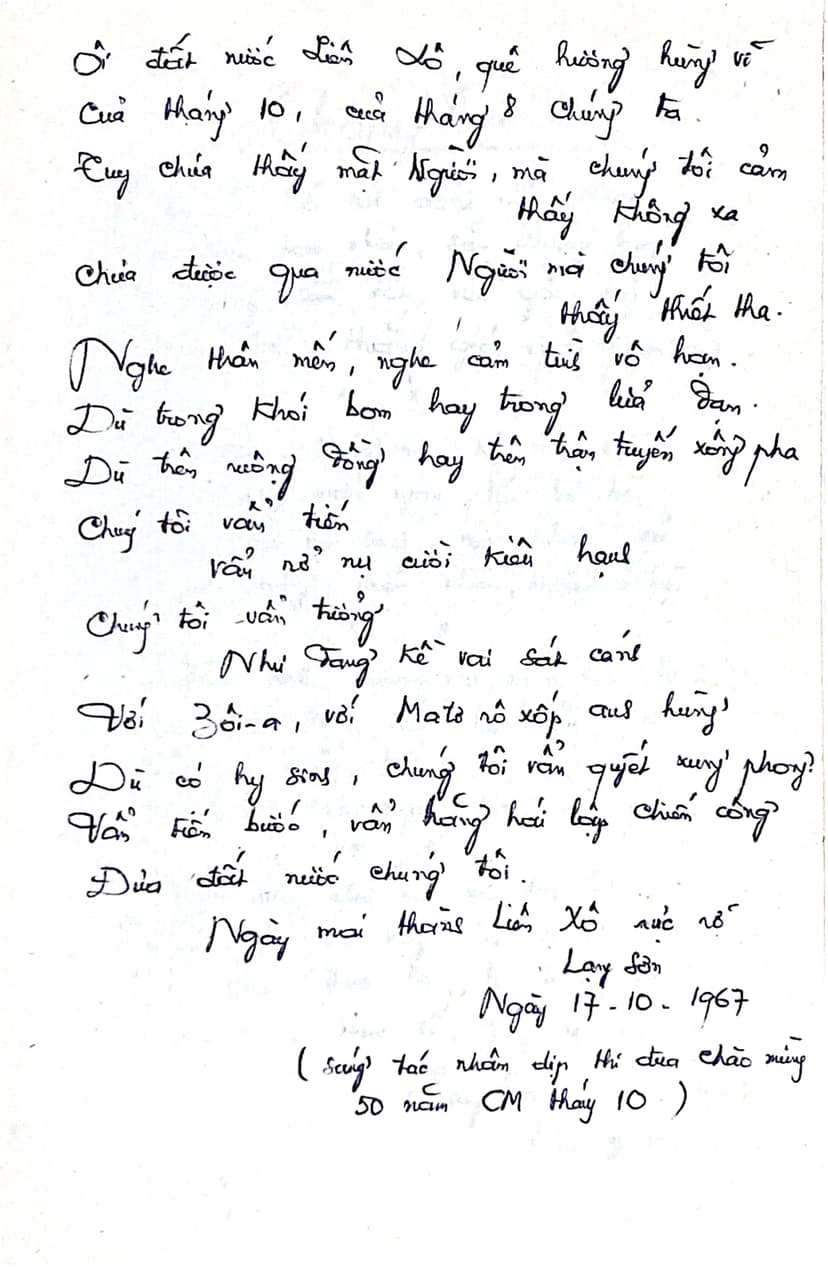 Ôi đất nước Liên Xô, quê hương hùng vĩ
Của tháng 10, của tháng 8 chúng ta.
Tuy chưa thấy mặt Người, mà chúng tôi cảm
thấy không xa
Chưa được qua nước Người mà chúng tôi
thấy thiết tha.
Nghe thân mến, nghe cảm tình vô hạn.
Dù trong khói bom hay trong lửa đạn.
Dù trên ruộng đồng hay trên trận tuyến xông pha
Chúng tôi vẫn tiến
vẫn nở nụ cười kiêu hạnh
Chúng tôi vẫn tưởng
Như đang kề vai sát cánh
Với Zôi-a, với Matơrôxốp anh hùng
Dù có hy sinh, chúng tôi vẫn quyết xung phong
Vẫn tiến bước, vẫn hăng hái lập chiến công
Đưa đất nước chúng tôi.
Ngày mai thành Liên Xô rực rỡ
Lạng Sơn
Ngày 17-10-1967
(Sáng tác nhân dịp thi đua chào mừng
50 năm CM tháng 10)